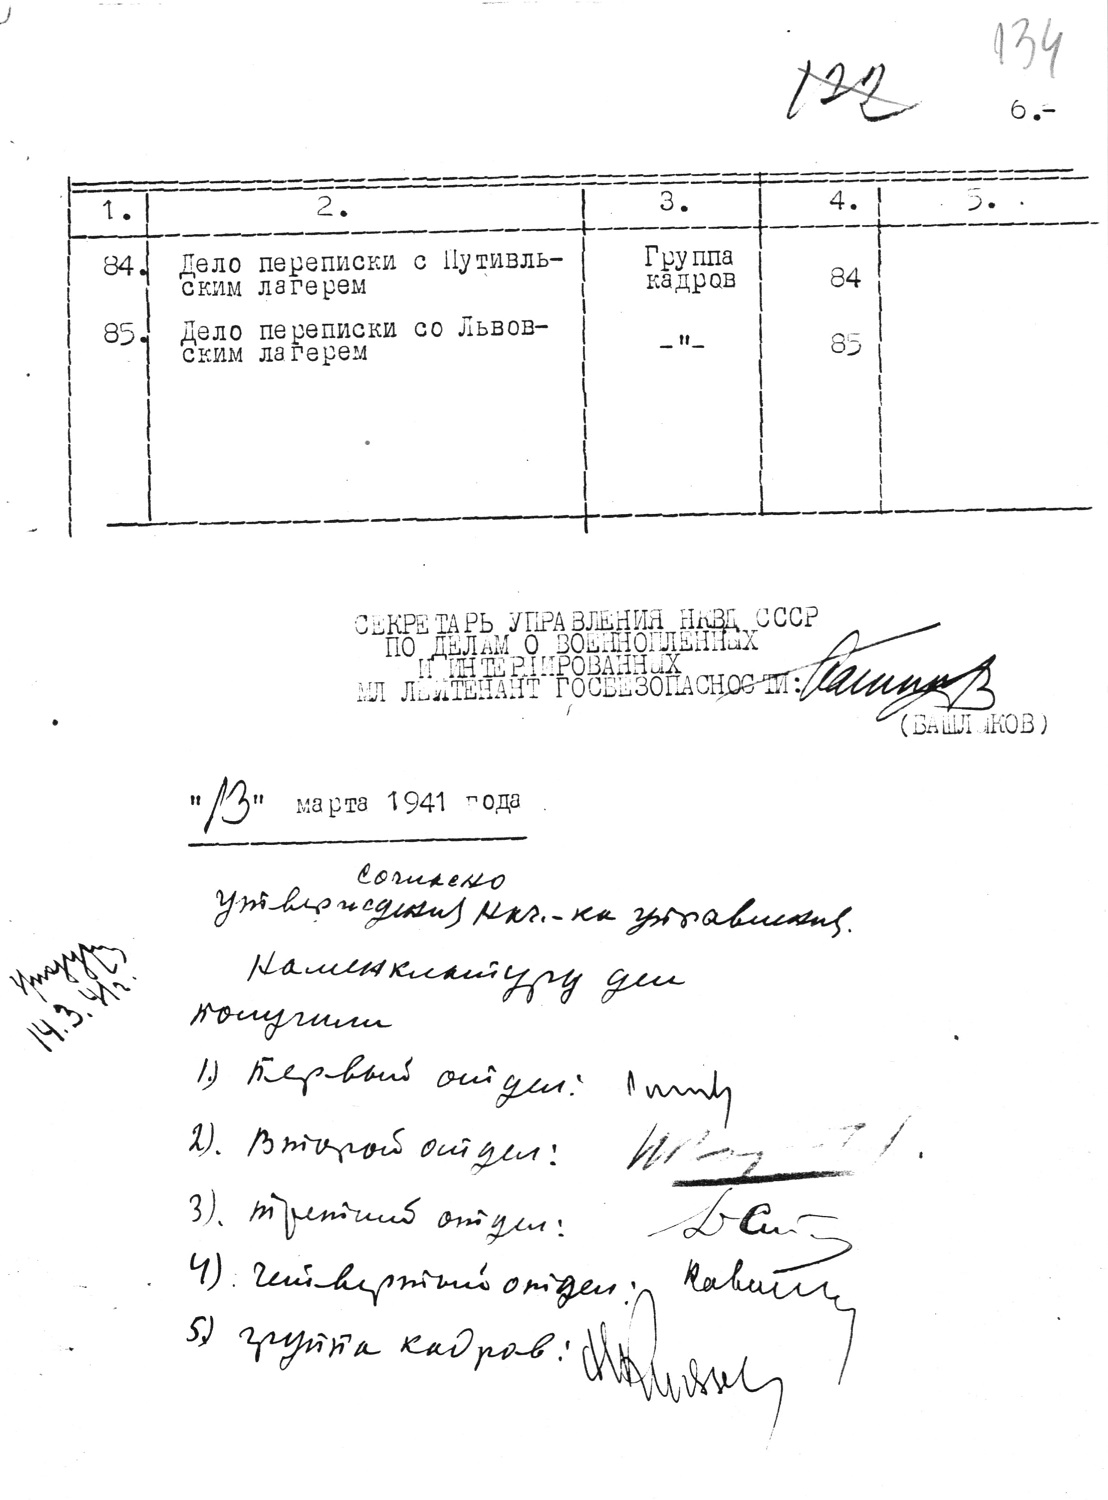 134
122
6.-
1. 2. 3. 4. 5.
84. Дело переписки с Путивль- Группа
ским лагерем кадров 84
85. Дело переписки со Львов-
ским лагерем -"- 85
СЕКРЕТАРЬ УПРАВЛЕНИЯ НКВД СССР
ПО ДЕЛАМ О ВОЕННОПЛЕННЫХ
И ИНТЕРНИРОВАННЫХ
МЛ ЛЕЙТЕНАНТ ГОСБЕЗОПАСНОСТИ:
(БАШЛЫКОВ)
"13" марта 1941 года
Согласно
утверждения Нач.-ка управления.
Наменклатуру дел
получили
14.3.41г.
1.) Первый отдел:
2). Второй отдел:
3). третий отдел:
4). четвертый отдел:
5.) группа кадров: